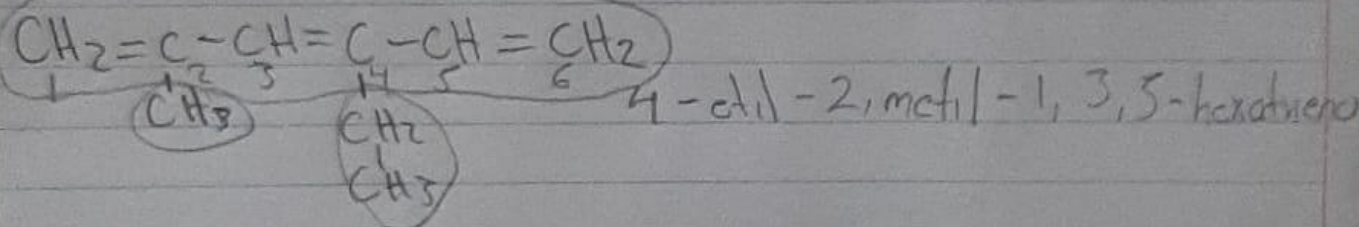 CH2=C-CH=C-CH=CH2
1 2 3 4 5 6
CH3 CH2 4-etil-2,metil-1,3,5-hexatrieno
CH3